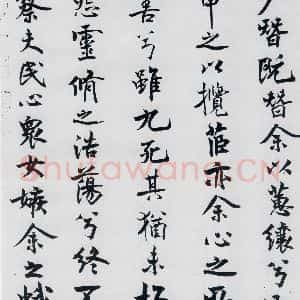 替既替余以蕙纕兮
申之以攬茝亦余心之所
善兮雖九死其猶未悔
怨靈脩之浩蕩兮終不
察夫民心衆女嫉余之蛾
Shufawang.CN